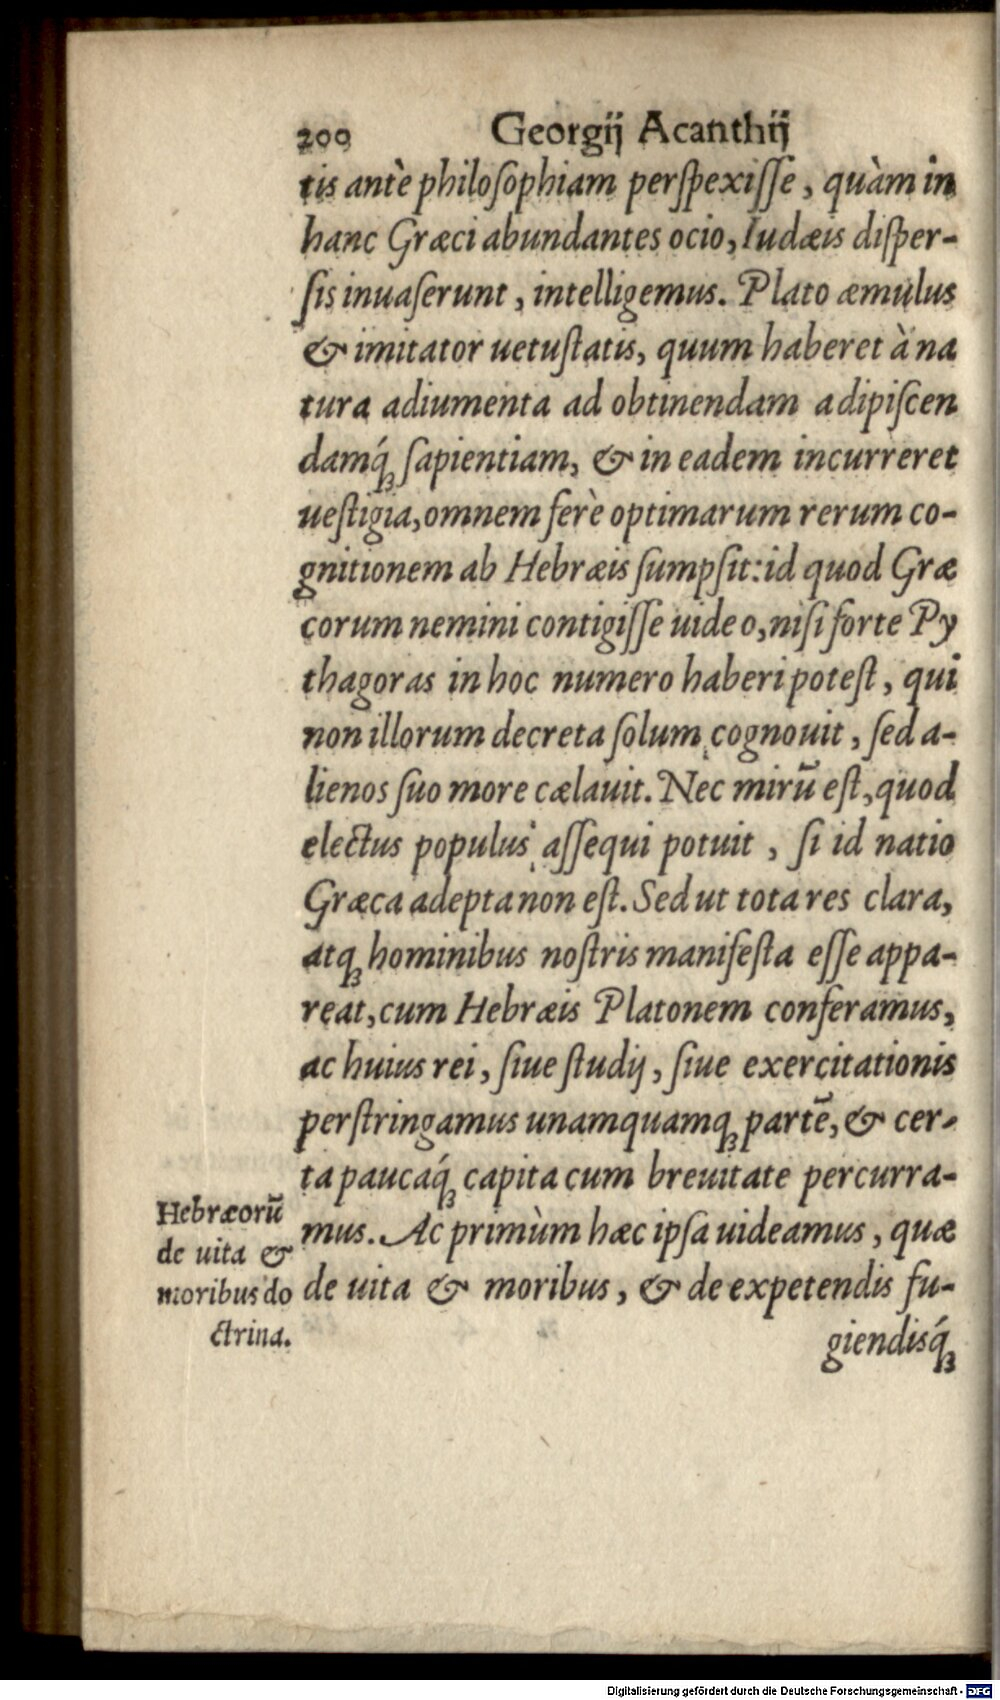 200 Georgij Acanthij
tis antè philoſophiam perſpexiſſe, quàm in
hanc Græci abundantes ocio, Iudæis diſper-
ſis inuaſerunt, intelligemus. Plato æmulus
& imitator uetuſtatis, quum haberet à na
tura adiumenta ad obtinendam adipiſcen
damq́; ſapientiam, & in eadem incurreret
ueſtigia, omnem ferè optimarum rerum co-
gnitionem ab Hebræis ſumpſit: id quod Græ
corum nemini contigiſſe uideo, niſi forte Py
thagoras in hoc numero haberi poteſt, qui
non illorum decreta ſolum cognouit, ſed a-
lienos ſuo more cælauit. Nec mirū eſt, quod
electus populus aſſequi potuit, ſi id natio
Græca adepta non eſt. Sed ut tota res clara,
atq; hominibus noſtris manifeſta eſſe appa-
reat, cum Hebræis Platonem conferamus,
ac huius rei, ſiue ſtudij, ſiue exercitationis
perſtringamus unamquamq; partē, & cer-
ta paucaq́; capita cum breuitate percurra-
mus. Ac primùm hæc ipſa uideamus, quæ
de uita & moribus, & de expetendis fu-
giendisq́;
Hebræorū
de uita &
moribus do
ctrina.
Digitalisierung gefördert durch die Deutsche Forschungsgemeinschaft - DFG